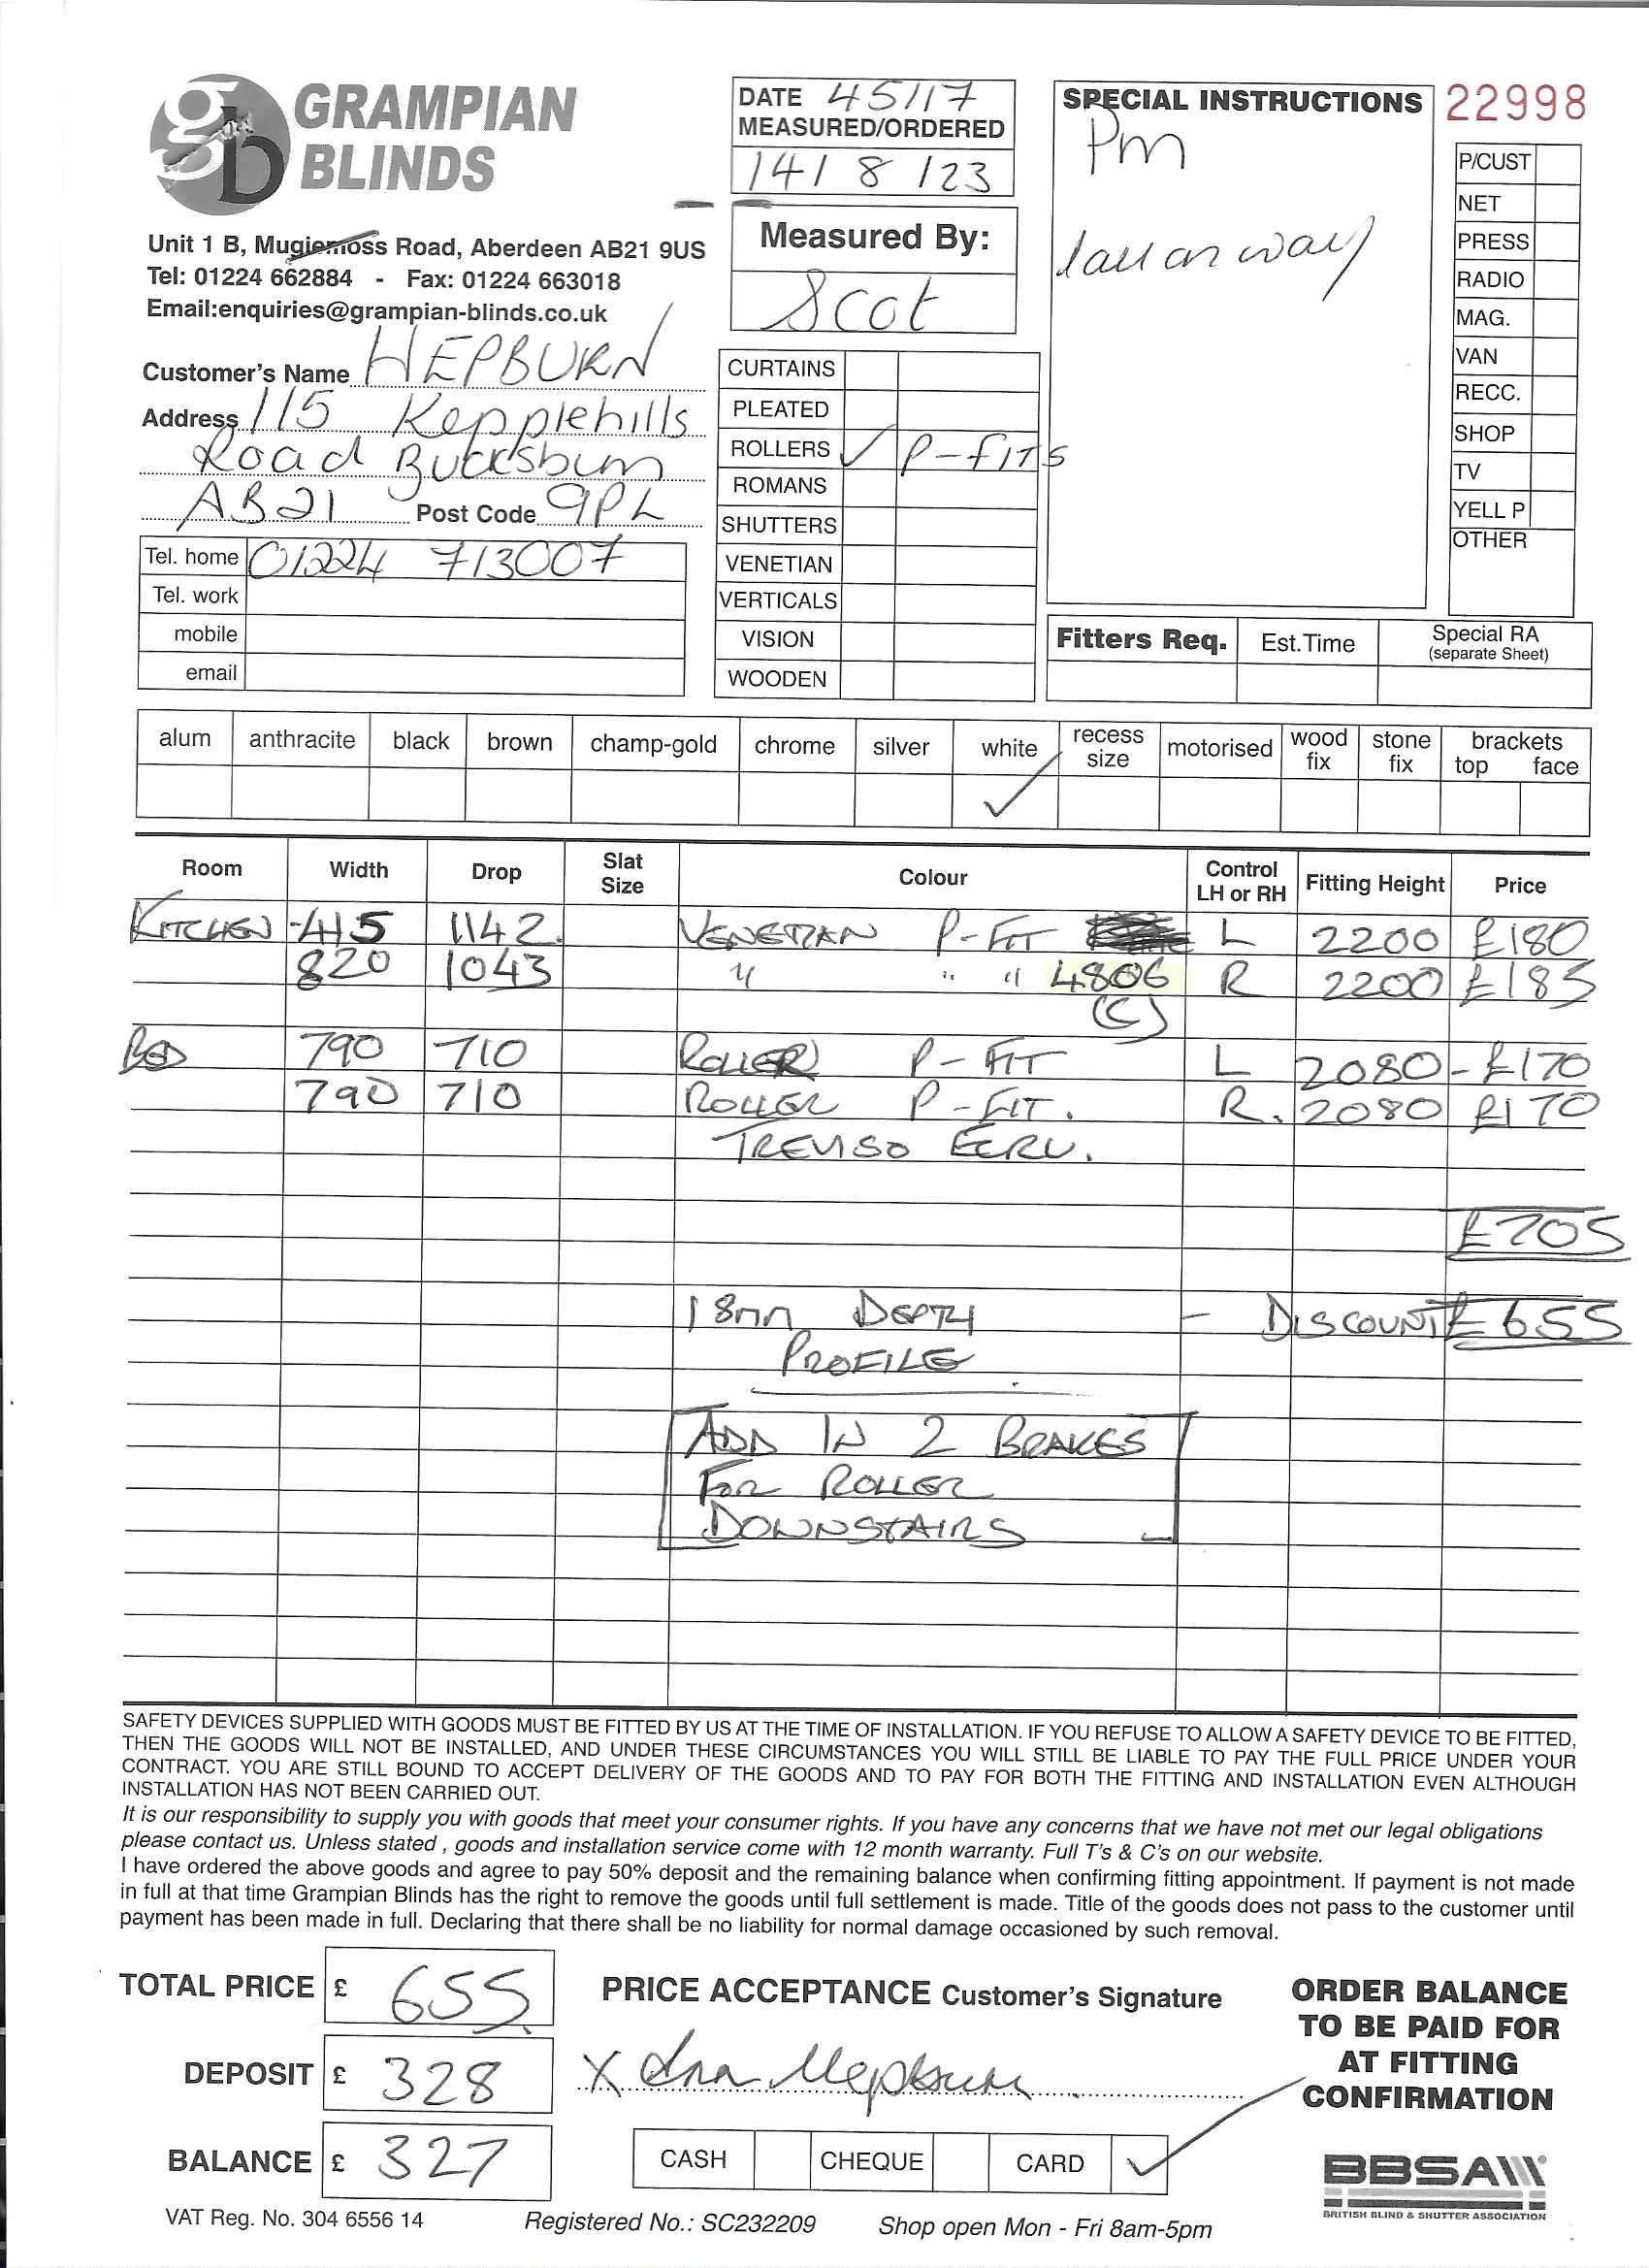 GRAMPIAN
BLINDS
Unit 1 B, Mugiemoss Road, Aberdeen AB21 9US
Tel: 01224 662884 - Fax: 01224 663018
Email:enquiries@grampian-blinds.co.uk
DATE 45117
MEASURED/ORDERED
14 / 8 / 23
Measured By:
Scot
SPECIAL INSTRUCTIONS
Pm
22998
P/CUST
NET
PRESS
RADIO
MAG.
VAN
RECC.
SHOP
TV
YELL P
OTHER
Customer's Name HEPBURN
Address 115 Kepplehills
Road Bucksburn
AB21 Post Code 9PL
Tel. home 01224 713007
Tel. work
mobile
email
CURTAINS
PLEATED
ROLLERS ✓ P-FITS
ROMANS
SHUTTERS
VENETIAN
VERTICALS
VISION
WOODEN
Fitters Req. Est.Time Special RA
(separate Sheet)
alum anthracite black brown champ-gold chrome silver white recess size motorised wood fix stone fix brackets top face
✓
Room Width Drop Slat Size Colour Control LH or RH Fitting Height Price
KITCHEN 415 1142 VENETIAN P-FIT L 2200 £180
820 1043 " " " 4806 R 2200 £185
(C)
BED 790 710 ROLLER P-FIT L 2080 - £170
790 710 ROLLER P-FIT. R. 2080 £170
TREVISO ECRU.
£705
18mm DEPTH - DISCOUNT £655
PROFILE
ADD IN 2 BRAKES
FOR ROLLER
DOWNSTAIRS
SAFETY DEVICES SUPPLIED WITH GOODS MUST BE FITTED BY US AT THE TIME OF INSTALLATION. IF YOU REFUSE TO ALLOW A SAFETY DEVICE TO BE FITTED,
THEN THE GOODS WILL NOT BE INSTALLED, AND UNDER THESE CIRCUMSTANCES YOU WILL STILL BE LIABLE TO PAY THE FULL PRICE UNDER YOUR
CONTRACT. YOU ARE STILL BOUND TO ACCEPT DELIVERY OF THE GOODS AND TO PAY FOR BOTH THE FITTING AND INSTALLATION EVEN ALTHOUGH
INSTALLATION HAS NOT BEEN CARRIED OUT.
It is our responsibility to supply you with goods that meet your consumer rights. If you have any concerns that we have not met our legal obligations
please contact us. Unless stated , goods and installation service come with 12 month warranty. Full T's & C's on our website.
I have ordered the above goods and agree to pay 50% deposit and the remaining balance when confirming fitting appointment. If payment is not made
in full at that time Grampian Blinds has the right to remove the goods until full settlement is made. Title of the goods does not pass to the customer until
payment has been made in full. Declaring that there shall be no liability for normal damage occasioned by such removal.
TOTAL PRICE £ 655
DEPOSIT £ 328
BALANCE £ 327
PRICE ACCEPTANCE Customer's Signature
X Hepburn
CASH CHEQUE CARD ✓
ORDER BALANCE
TO BE PAID FOR
AT FITTING
CONFIRMATION
BBSA
BRITISH BLIND & SHUTTER ASSOCIATION
VAT Reg. No. 304 6556 14 Registered No.: SC232209 Shop open Mon - Fri 8am-5pm